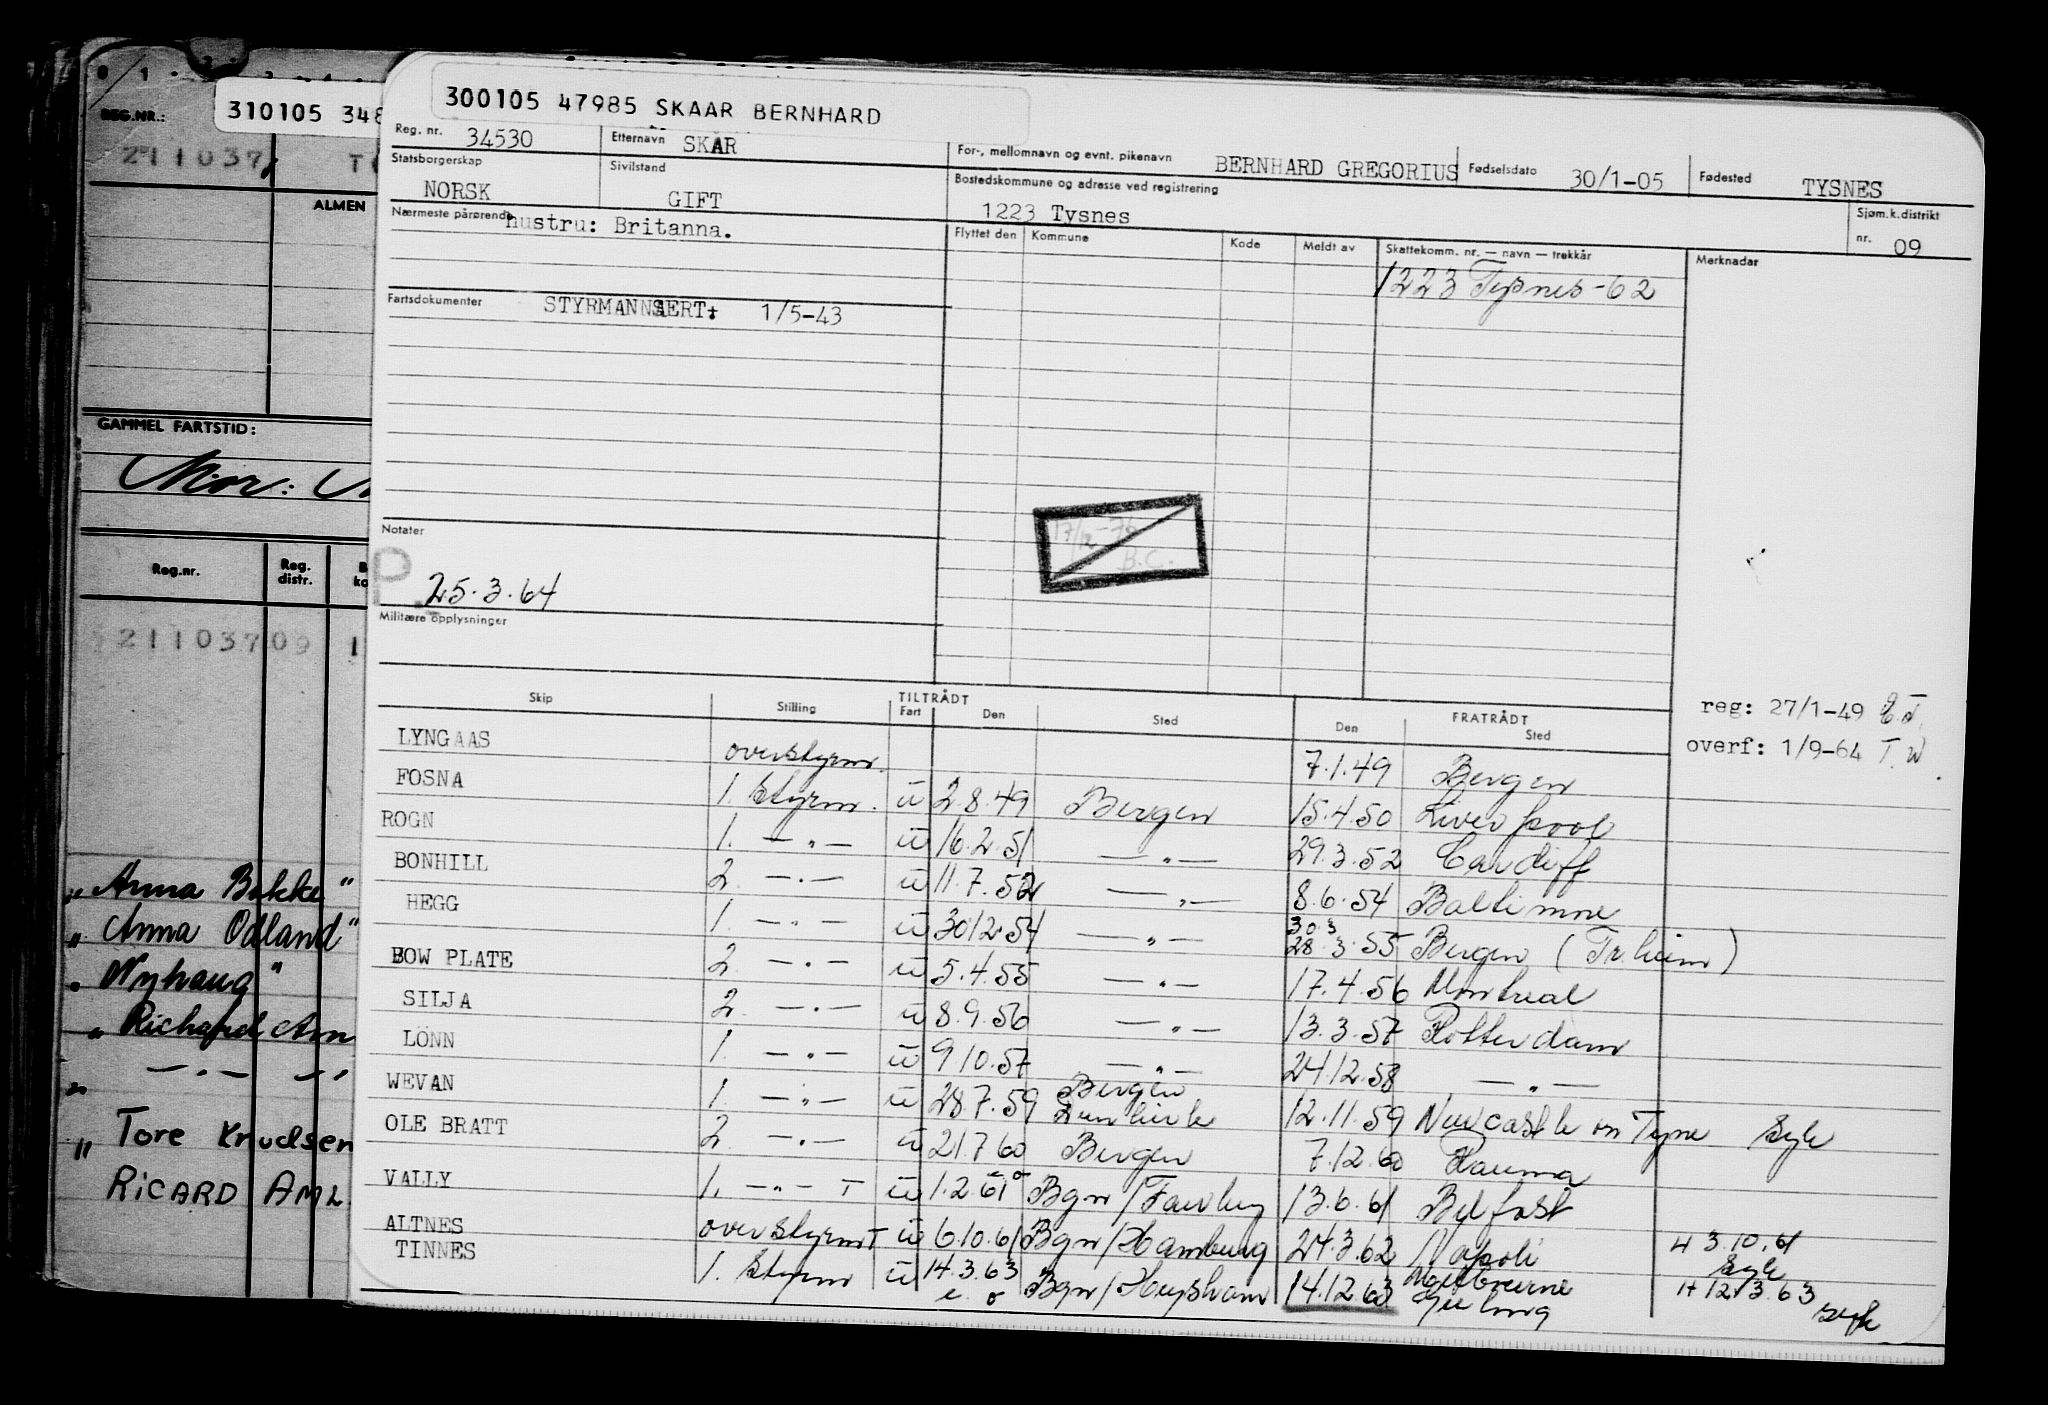 310105 348
REG.NR.:
211037
ALMEN
GAMMEL FARTSTID:
Mor:
Reg.nr.
Reg. distr.
21103709 1
„ Anna Bakke "
„ Anna Odland "
„ Nyhaug "
„ Richard Am
„ — „ —
„ Tore Knudsen
RICARD AML
300105 47985 SKAAR BERNHARD
Reg. nr. 34530 Etternavn SKAR For-, mellomnavn og evnt. pikenavn BERNHARD GREGORIUS Fødselsdato 30/1-05 Fødested TYSNES
Statsborgerskap NORSK Sivilstand GIFT Bostedskommune og adresse ved registrering 1223 Tysnes Sjøm.k.distrikt nr. 09
Nærmeste pårørende hustru: Britanna.
Flyttet den Kommune Kode Meldt av Skattekomm. nr. — navn — trekkår Merknader
1223 Tysnes -62
Fartsdokumenter STYRMANNSERT: 1/5-43
17/12-78
B.C.
Notater
P.
25.3.64
Militære opplysninger
reg: 27/1-49 E.T.
overf: 1/9-64 T.W.
TILTRÅDT FRATRÅDT
Skip Stilling Fart Den Sted Den Sted
LYNGAAS overstyrm. 7.1.49 Bergen
FOSNA 1. Styrm. u 2.8.49 Bergen 15.4.50 Liverpool
ROGN 1. — „ — u 16.2.51 — „ — 29.3.52 Cardiff
BONHILL 2. — „ — u 11.7.52 — „ — 8.6.54 Baltimore
HEGG 1. — „ — u 3012.54 — „ — 30.3 28.3.55 Bergen (Tr.heim)
BOW PLATE 2. — „ — u 5.4.55 — „ — 17.4.56 Montreal
SILJA 2. — „ — u 8.9.56 — „ — 13.3.57 Rotterdam
LÖNN 1. — „ — u 9 10.57 — „ — 24.12.58 — „ —
WEVAN 1. — „ — u 28 7.59 Bergen Dunkirk 12.11.59 Newcastle on Tyne Syk
OLE BRATT 2. — „ — u 21.7 60 Bergen 7.12.60 Rauma
VALLY 1. — „ — T u 1.2.61 Bgn/Fawley 13.6.61 Belfast
ALTNES overstyrm T u 6.10.61 Bgn/Hamburg 24.3.62 Napoli 4 3.10.61 Syk
TINNES 1. Styrm u 14.3.63 Bgn/Heysham 14.12 63 Melbourne Geelong 12 3.63 syk